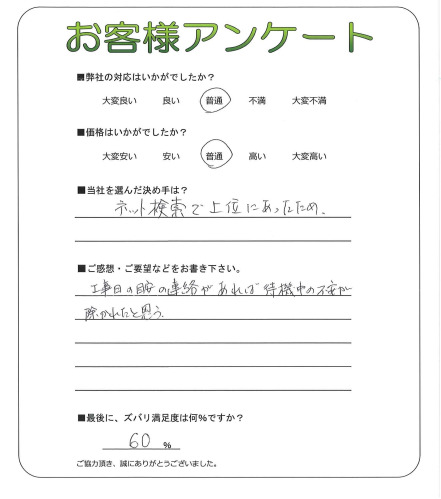 お客様アンケート
■弊社の対応はいかがでしたか？
大変良い 良い 普通 不満 大変不満
■価格はいかがでしたか？
大変安い 安い 普通 高い 大変高い
■当社を選んだ決め手は？
ネット検索で上位にあったため。
■ご感想・ご要望などをお書き下さい。
工事日の目安の連絡があれば待機中の不安が
除かれたと思う。
■最後に、ズバリ満足度は何％ですか？
60 %
ご協力頂き、誠にありがとうございました。